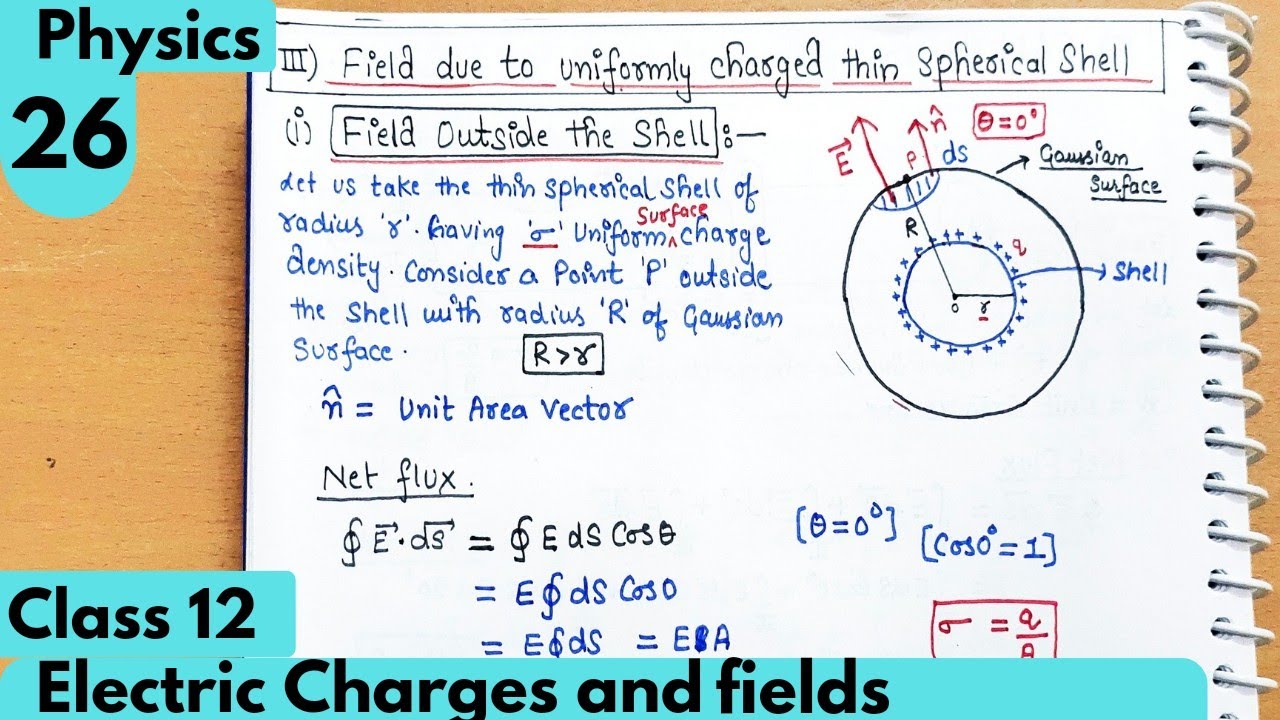 Physics
26
III) Field due to uniformly charged thin Spherical Shell
(i) Field Outside the Shell :—
Let us take the thin spherical shell of
radius 'r'. having 'σ' uniform ^ Surface charge
density. Consider a Point 'P' outside
the Shell with radius 'R' of Gaussian
Surface.
R > r
n̂ = Unit Area Vector
E⃗
P
n̂
θ=0°
ds
Gaussian
Surface
R
q
Shell
o
r
Net flux.
∮ E⃗·dS⃗ = ∮ E dS Cosθ
[θ=0°]
[Cos0°=1]
= E∮ dS Cos0
= E∮dS = E A
σ = q/A
Class 12
Electric Charges and fields